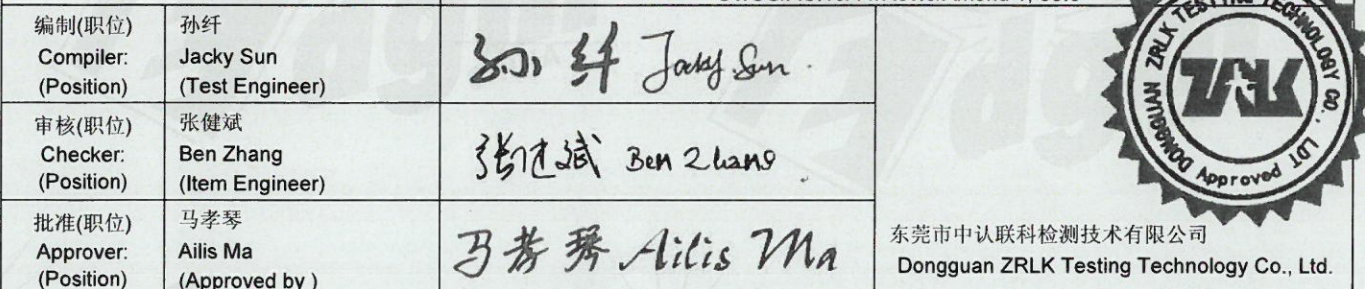 编制(职位)
Compiler:
(Position)
孙纤
Jacky Sun
(Test Engineer)
孙纤 Jacky Sun
审核(职位)
Checker:
(Position)
张健斌
Ben Zhang
(Item Engineer)
张健斌 Ben Zhang
批准(职位)
Approver:
(Position)
马孝琴
Ailis Ma
(Approved by )
马孝琴 Ailis Ma
DONGGUAN ZRLK TESTING TECHNOLOGY CO., LDT
ZRLK
Approved
东莞市中认联科检测技术有限公司
Dongguan ZRLK Testing Technology Co., Ltd.